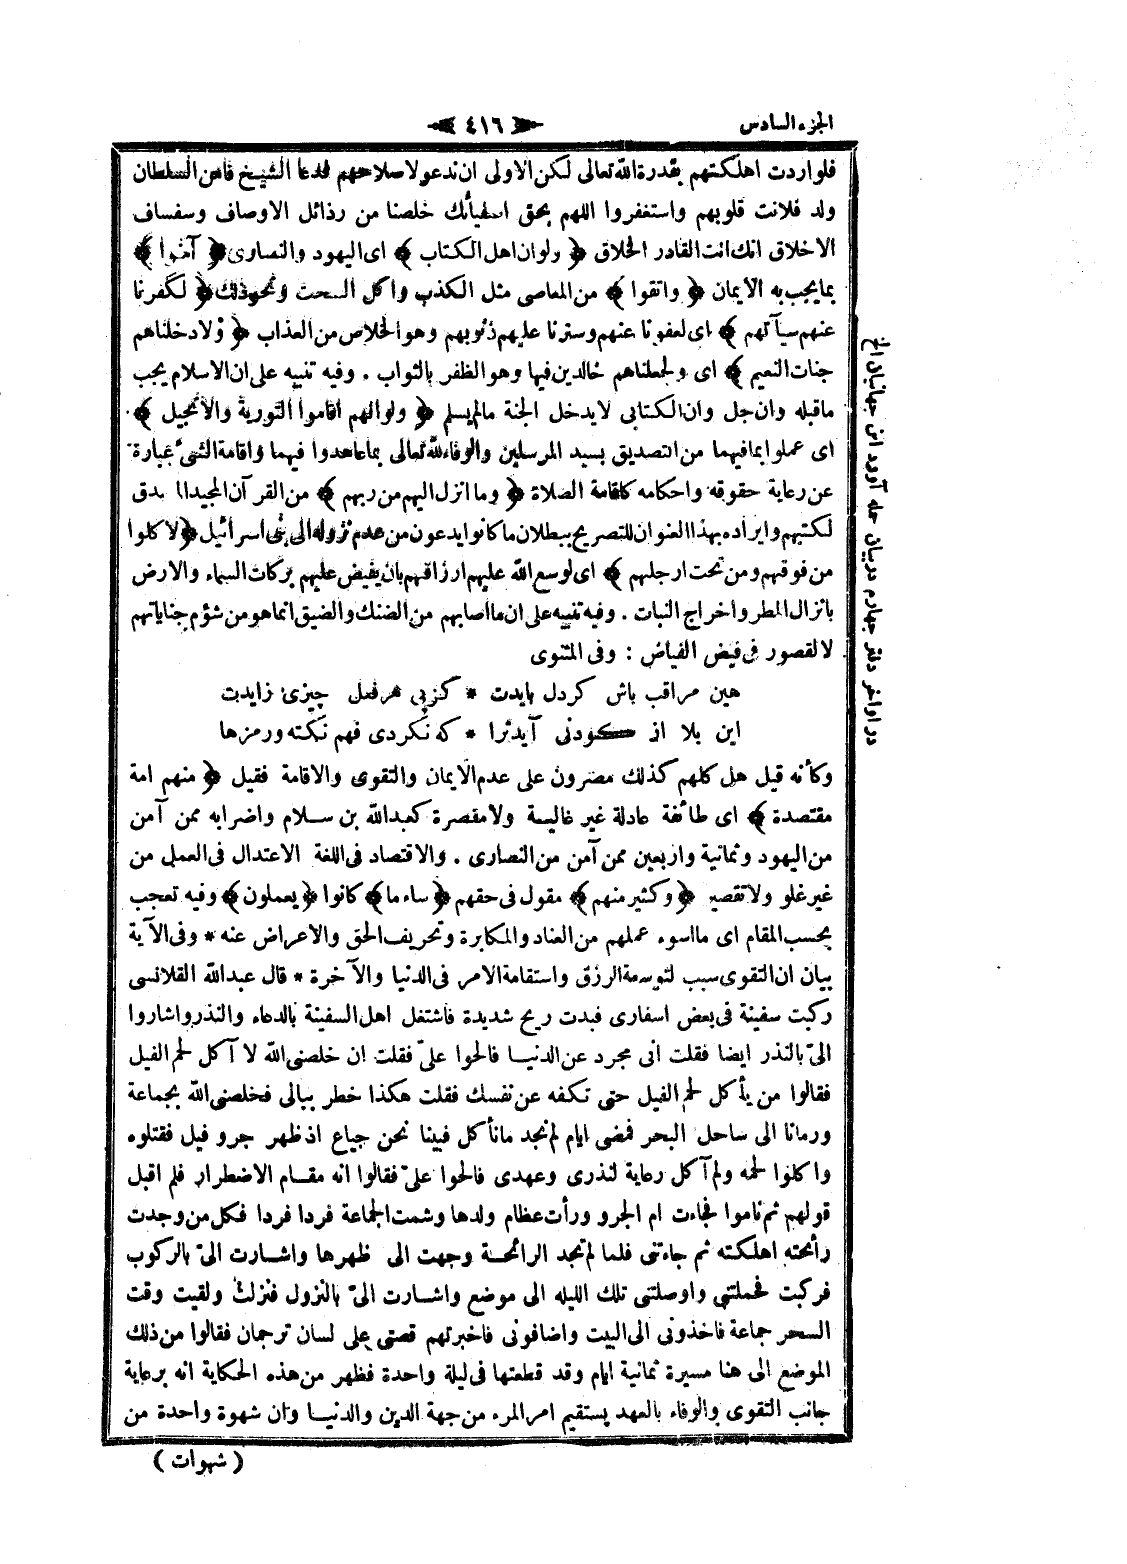 الجزء السادس
٤١٦
فلو اردت اهلكتهم بقدرة الله تعالى لكن الاولى ان ندعو لاصلاحهم فدعا الشيخ فامن السلطان
ولد فلانت قلوبهم واستغفروا اللهم بحق اصفيائك خلصنا من رذائل الاوصاف وسفساف
الاخلاق انك انت القادر الخلاق ﴿ ولو ان اهل الكتاب ﴾ اى اليهود والنصارى ﴿ آمنوا ﴾
بما يجب به الايمان ﴿ واتقوا ﴾ من المعاصى مثل الكذب واكل السحت ونحو ذلك ﴿ لكفرنا
عنهم سيآتهم ﴾ اى لعفونا عنهم وسترنا عليهم ذنوبهم وهو الخلاص من العذاب ﴿ ولادخلناهم
جنات النعيم ﴾ اى ولجعلناهم خالدين فيها وهو الظفر بالثواب . وفيه تنبيه على ان الاسلام يجب
ما قبله وان جل وان الكتابى لا يدخل الجنة مالم يسلم ﴿ ولو انهم اقاموا التورية والانجيل ﴾
اى عملوا بما فيهما من التصديق بسيد المرسلين والوفاء لله تعالى بما عاهدوا فيهما واقامة الشئ عبارة
عن رعاية حقوقه واحكامه كاقامة الصلاة ﴿ وما انزل اليهم من ربهم ﴾ من القرآن المجيد المصدق
لكتبهم وايراده بهذا العنوان للتصريح ببطلان ما كانوا يدعون من عدم نزوله الى بنى اسرائيل ﴿ لاكلوا
من فوقهم ومن تحت ارجلهم ﴾ اى لوسع الله عليهم ارزاقهم بان يفيض عليهم بركات السماء والارض
بانزال المطر واخراج النبات . وفيه تنبيه على ان ما اصابهم من الضنك والضيق انما هو من شؤم جناياتهم
لا لقصور فى فيض الفياض : وفى المثنوى
هين مراقب باش كردل بايدت * كزپى هرفعل چيزى زايدت
اين بلا از كودنى آيدترا * كه نكردى فهم نكته ورمزها
وكأنه قيل هل كلهم كذلك مصرون على عدم الايمان والتقوى والاقامة فقيل ﴿ منهم امة
مقتصدة ﴾ اى طائفة عادلة غير غالية ولا مقصرة كعبد الله بن سلام واضرابه ممن آمن
من اليهود وثمانية واربعين ممن آمن من النصارى . والاقتصاد فى اللغة الاعتدال فى العمل من
غير غلو ولا تقصير ﴿ وكثير منهم ﴾ مقول فى حقهم ﴿ ساء ما ﴾ كانوا ﴿ يعملون ﴾ وفيه تعجب
بحسب المقام اى ما اسوء عملهم من العناد والمكابرة وتحريف الحق والاعراض عنه * وفى الآية
بيان ان التقوى سبب لتوسعة الرزق واستقامة الامر فى الدنيا والآخرة * قال عبد الله القلانسى
ركبت سفينة فى بعض اسفارى فبدت ريح شديدة فاشتغل اهل السفينة بالدعاء والنذر واشاروا
الىّ بالنذر ايضا فقلت انى مجرد عن الدنيا فالحوا علىّ فقلت ان خلصنى الله لا آكل لحم الفيل
فقالوا من يأكل لحم الفيل حتى تكفه عن نفسك فقلت هكذا خطر ببالى فخلصنى الله بجماعة
ورمانا الى ساحل البحر فمضى ايام لم نجد ما نأكل فبينا نحن جياع اذ ظهر جرو فيل فقتلوه
واكلوا لحمه ولم آكل رعاية لنذرى وعهدى فالحوا علىّ فقالوا انه مقام الاضطرار فلم اقبل
قولهم ثم ناموا فجاءت ام الجرو ورأت عظام ولدها وشمت الجماعة فردا فردا فكل من وجدت
رائحته اهلكته ثم جاءتنى فلما لم تجد الرائحة وجهت الى ظهرها واشارت الىّ بالركوب
فركبت فحملتنى واوصلتنى تلك الليله الى موضع واشارت الىّ بالنزول فنزلت ولقيت وقت
السحر جماعة فاخذونى الى البيت واضافونى فاخبرتهم قصتى على لسان ترجمان فقالوا من ذلك
الموضع الى هنا مسيرة ثمانية ايام وقد قطعتها فى ليلة واحدة فظهر من هذه الحكاية انه برعاية
جانب التقوى والوفاء بالعهد يستقيم امر المرء من جهة الدين والدنيا وان شهوة واحدة من
( شهوات )
در اواخر دفتر چهارم دربيان حمله آوردن اين جهانيان الخ